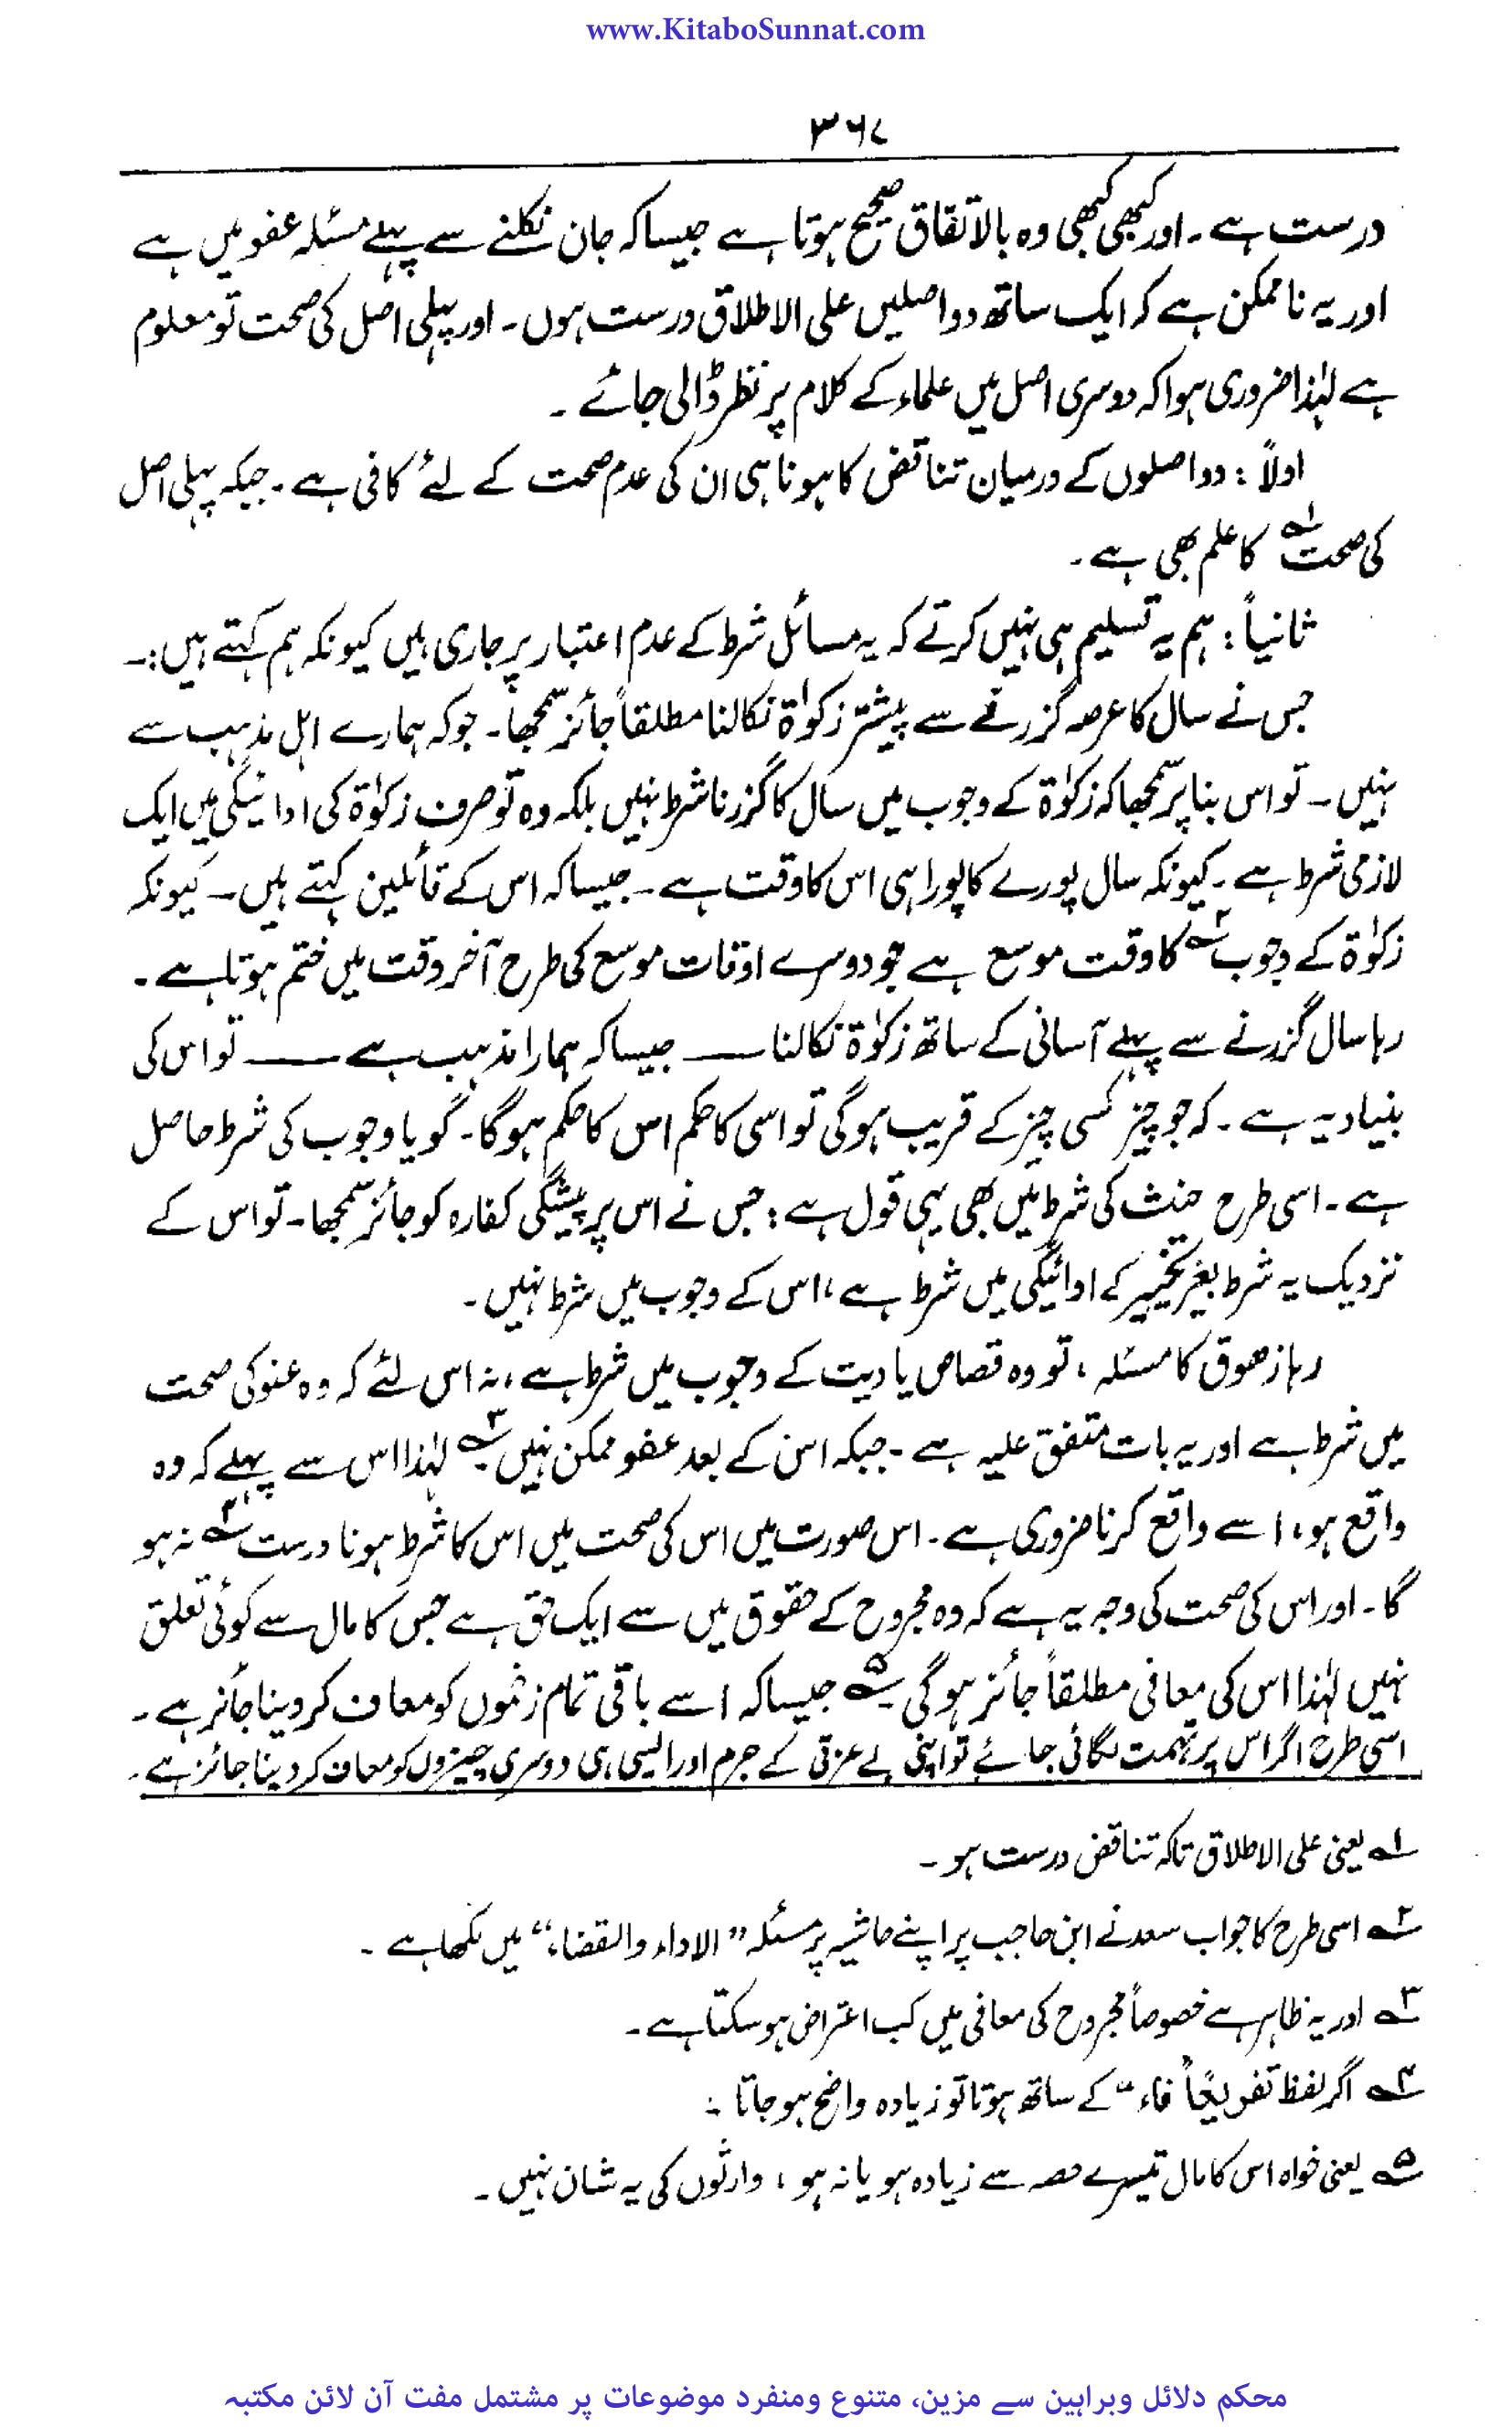 www.KitaboSunnat.com
۳۶۷
درست ہے۔ اور کبھی کبھی وہ بالاتفاق صحیح ہوتا ہے جیسا کہ جان نکلنے سے پہلے مسئلہ عفو میں ہے
اور یہ ناممکن ہے کہ ایک ساتھ دو اصلیں علی الاطلاق درست ہوں۔ اور پہلی اصل کی صحت تو معلوم
ہے لہٰذا ضروری ہوا کہ دوسری اصل میں علماء کے کلام پر نظر ڈالی جائے۔
اولاً : دو اصلوں کے درمیان تناقض کا ہونا ہی ان کی عدم صحت کے لئے کافی ہے۔ جبکہ پہلی اصل
کی صحت ۱؎ کا علم بھی ہے۔
ثانیاً : ہم یہ تسلیم ہی نہیں کرتے کہ یہ مسائل شرط کے عدم اعتبار پر جاری ہیں کیونکہ ہم کہتے ہیں :۔
جس نے سال کا عرصہ گزرنے سے پیشتر زکوٰۃ نکالنا مطلقاً جائز سمجھا۔ جو کہ ہمارے اہل مذہب سے
نہیں۔ تو اس بنا پر سمجھا کہ زکوٰۃ کے وجوب میں سال کا گزرنا شرط نہیں بلکہ وہ تو صرف زکوٰۃ کی ادائیگی میں ایک
لازمی شرط ہے۔ کیونکہ سال پورے کا پورا ہی اس کا وقت ہے۔ جیسا کہ اس کے قائلین کہتے ہیں۔ کیونکہ
زکوٰۃ کے وجوب ۲؎ کا وقت موسع ہے جو دوسرے اوقات موسع کی طرح آخر وقت میں ختم ہوتا ہے۔
رہا سال گزرنے سے پہلے آسانی کے ساتھ زکوٰۃ نکالنا —— جیسا کہ ہمارا مذہب ہے —— تو اس کی
بنیاد یہ ہے۔ کہ جو چیز کسی چیز کے قریب ہوگی تو اسی کا حکم اس کا حکم ہوگا۔ گویا وجوب کی شرط حاصل
ہے۔ اسی طرح حنث کی شرط میں بھی یہی قول ہے : جس نے اس پر پیشگی کفارہ کو جائز سمجھا۔ تو اس کے
نزدیک یہ شرط بغیر تخییر کے ادائیگی میں شرط ہے، اس کے وجوب میں شرط نہیں۔
رہا زھوق کا مسئلہ، تو وہ قصاص یا دیت کے وجوب میں شرط ہے، نہ اس لئے کہ وہ عفو کی صحت
میں شرط ہے اور یہ بات متفق علیہ ہے۔ جبکہ اس کے بعد عفو ممکن نہیں ۳؎ لہٰذا اس سے پہلے کہ وہ
واقع ہو، اسے واقع کرنا ضروری ہے۔ اس صورت میں اس کی صحت میں اس کا شرط ہونا درست ۴؎ نہ ہو
گا۔ اور اس کی صحت کی وجہ یہ ہے کہ وہ مجروح کے حقوق میں سے ایک حق ہے جس کا مال سے کوئی تعلق
نہیں لہٰذا اس کی معافی مطلقاً جائز ہوگی ۵؎ جیسا کہ اسے باقی تمام زخموں کو معاف کر دینا جائز ہے۔
اسی طرح اگر اس پر تہمت لگائی جائے تو اپنی بے عزتی کے جرم اور ایسی ہی دوسری چیزوں کو معاف کر دینا جائز ہے۔
۱؎ یعنی علی الاطلاق تاکہ تناقض درست ہو۔
۲؎ اسی طرح کا جواب سعد نے ابن حاجب پر اپنے حاشیہ پر مسئلہ ”الاداء والقضاء“ میں لکھا ہے۔
۳؎ اور یہ ظاہر ہے خصوصاً مجروح کی معافی میں کب اعتراض ہو سکتا ہے۔
۴؎ اگر لفظ تفریعاً ”فاء“ کے ساتھ ہوتا تو زیادہ واضح ہو جاتا :
۵؎ یعنی خواہ اس کا مال تیسرے حصہ سے زیادہ ہو یا نہ ہو، وارثوں کی یہ شان نہیں۔
محکم دلائل وبراہین سے مزین، متنوع ومنفرد موضوعات پر مشتمل مفت آن لائن مکتبہ